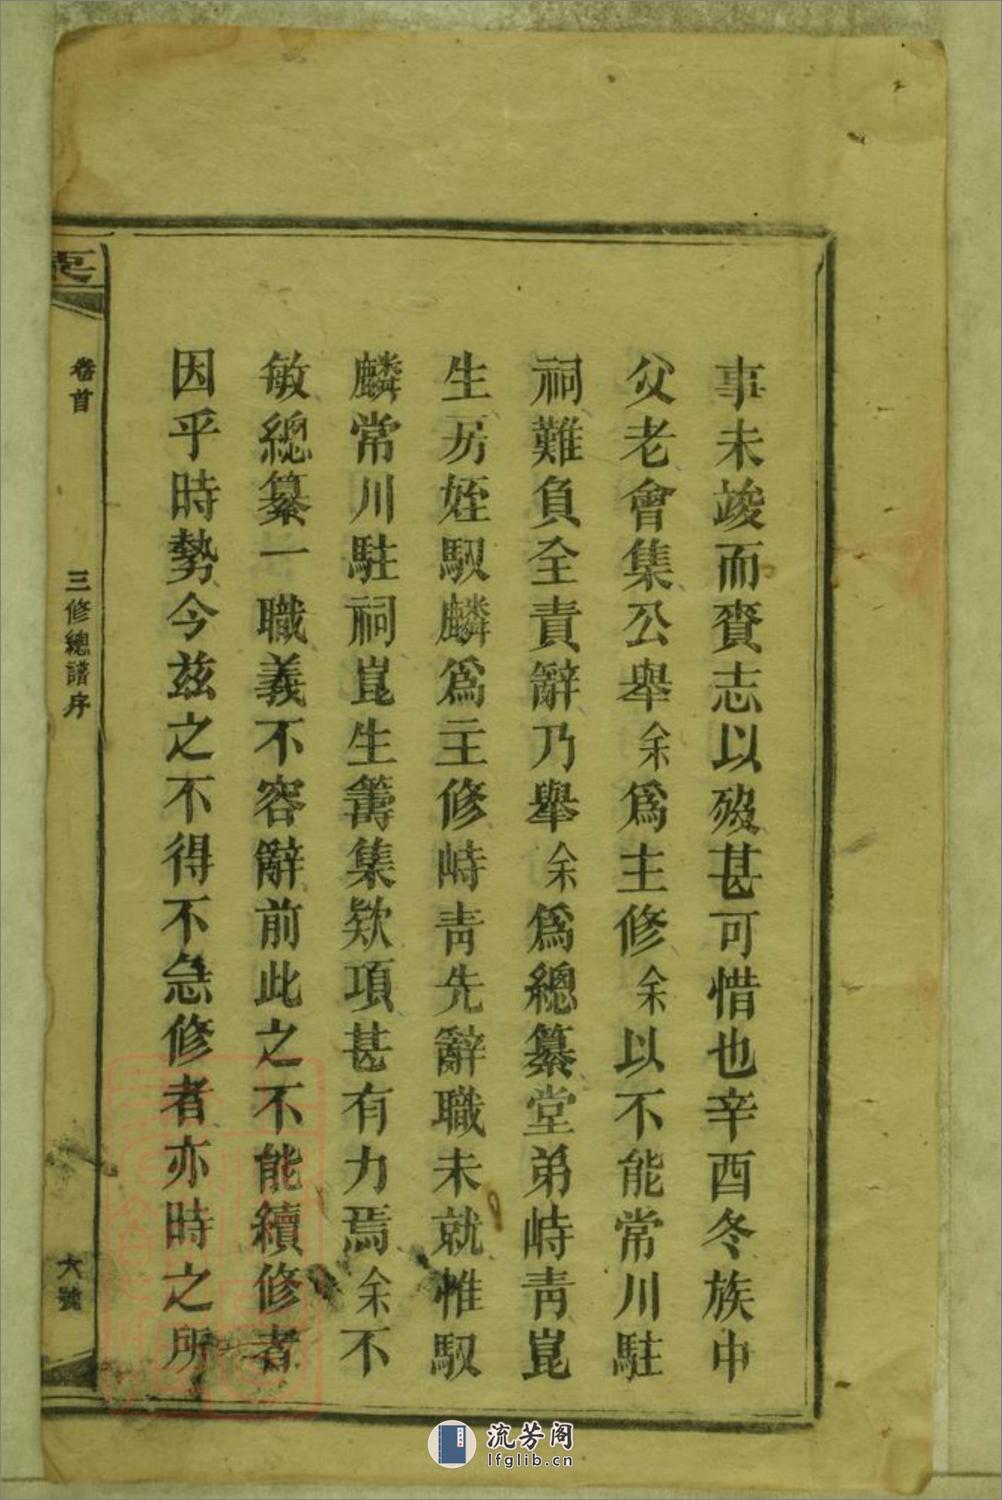 事未竣而賫志以歿甚可惜也辛酉冬族中
父老會集公舉余爲主修余以不能常川駐
祠難負全責辭乃舉余爲總纂堂弟峙青崑
生房姪馭麟爲主修峙青先辭職未就惟馭
麟常川駐祠崑生籌集欵項甚有力焉余不
敏總纂一職義不容辭前此之不能續修者
因乎時勢今茲之不得不急修者亦時之所
卷首
三修總譜序
六號
流芳阁
lfglib.cn